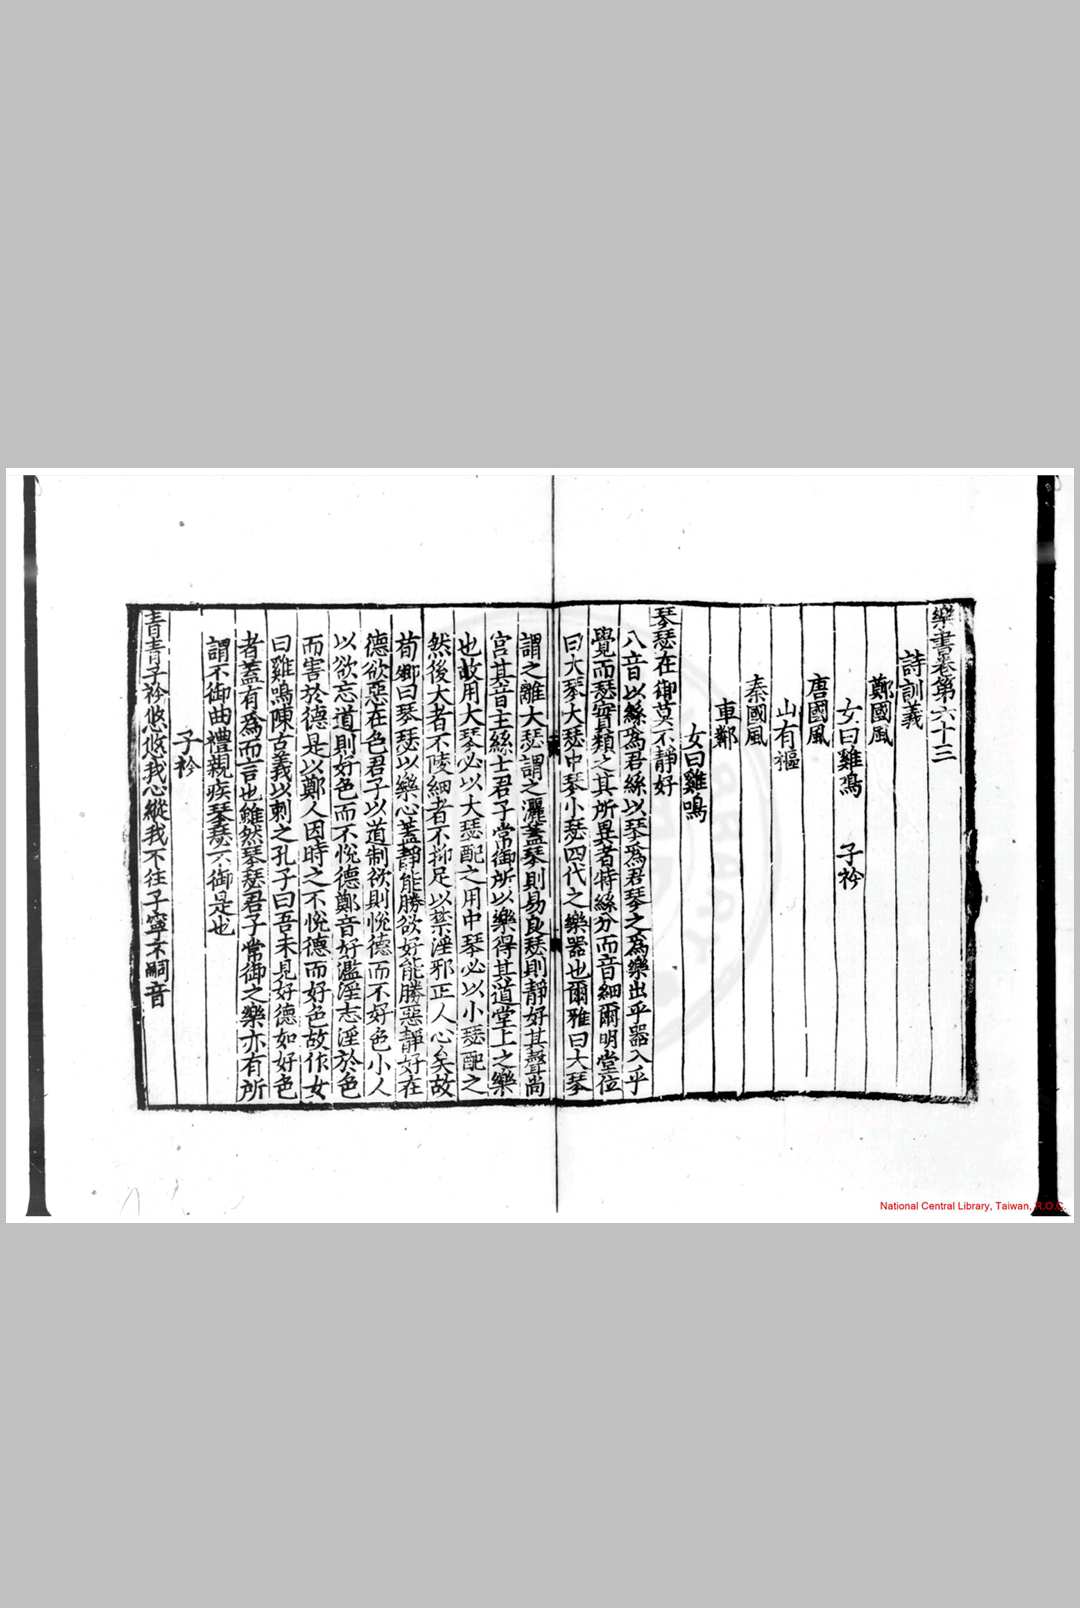 樂書卷第六十三
詩訓義
鄭國風
女曰雞鳴 子衿
唐國風
山有樞
秦國風
車鄰
女曰雞鳴
琴瑟在御莫不靜好
八音以絲爲君絲以琴爲君琴之爲樂出乎器入乎
覺而瑟實類之其所異者特絲分而音細爾明堂位
曰大琴大瑟中琴小瑟四代之樂器也爾雅曰大琴
謂之離大瑟謂之灑蓋琴則易良瑟則靜好其聲尚
宮其音主絲士君子常御所以樂得其道堂上之樂
也故用大琴必以大瑟配之用中琴必以小瑟配之
然後大者不陵細者不抑足以禁淫邪正人心矣故
荀卿曰琴瑟以樂心蓋靜能勝欲好能勝惡靜好在
德欲惡在色君子以道制欲則悅德而不好色小人
以欲忘道則好色而不悅德鄭音好濫淫志淫於色
而害於德是以鄭人因時之不悅德而好色故作女
曰雞鳴陳古義以刺之孔子曰吾未見好德如好色
者蓋有爲而言也雖然琴瑟君子常御之樂亦有所
謂不御曲禮親疾琴瑟不御是也
子衿
青青子衿悠悠我心縱我不往子寧不嗣音
National Central Library, Taiwan, R.O.C.